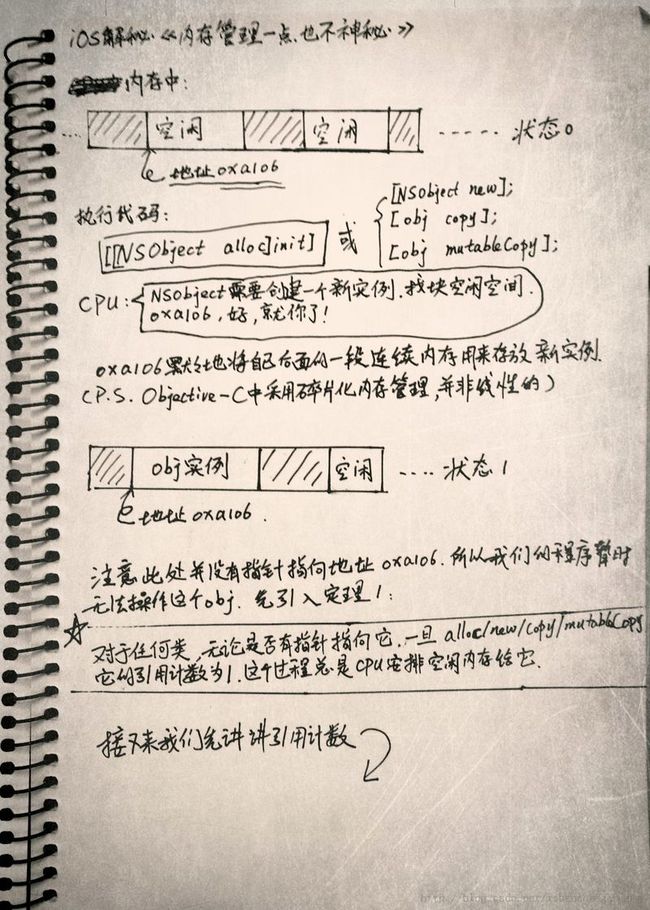 iOS解秘《内存管理一点也不神秘》
内存中:
空闲 空闲 ----- 状态0
地址0xa106
执行代码:
[[NSObject alloc]init] 或
[NSObject new];
[obj copy];
[obj mutableCopy];
CPU: NSObject需要创建一个新实例.找块空闲空间.
0xa106,好,就你了!
0xa106默默地将自己后面的一段连续内存用来存放新实例.
(P.S. Objective-C中采用碎片化内存管理,并非线性的)
obj实例 空闲 .... 状态1
地址0xa106.
注意此处并没有指针指向地址0xa106.所以我们的程序暂时
无法操作这个obj. 先引入定理1:
☆
对于任何类,无论是否有指针指向它,一旦alloc/new/copy/mutableCopy
它的引用计数为1.这个过程总是CPU安排空闲内存给它.
接下来我们先讲讲引用计数